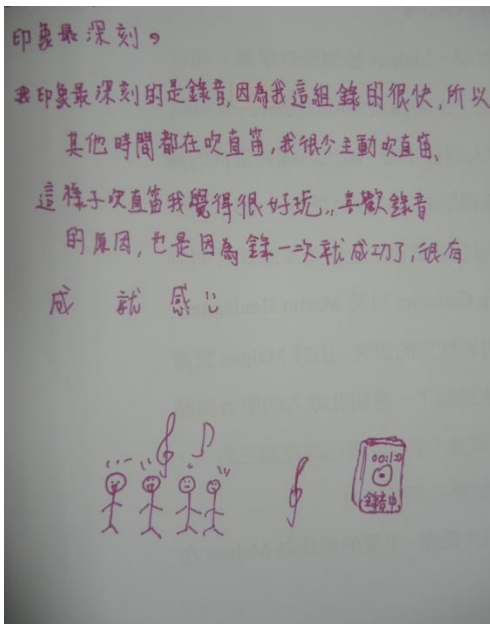 印象最深刻。
印象最深刻的是錄音,因為我這組錄的很快,所以
其他時間都在吹直笛,我很少主動吹直笛、
這樣子吹直笛我覺得很好玩,,喜歡錄音
的原因,也是因為錄一次就成功了,很有
成 就 感
00:10
錄音中